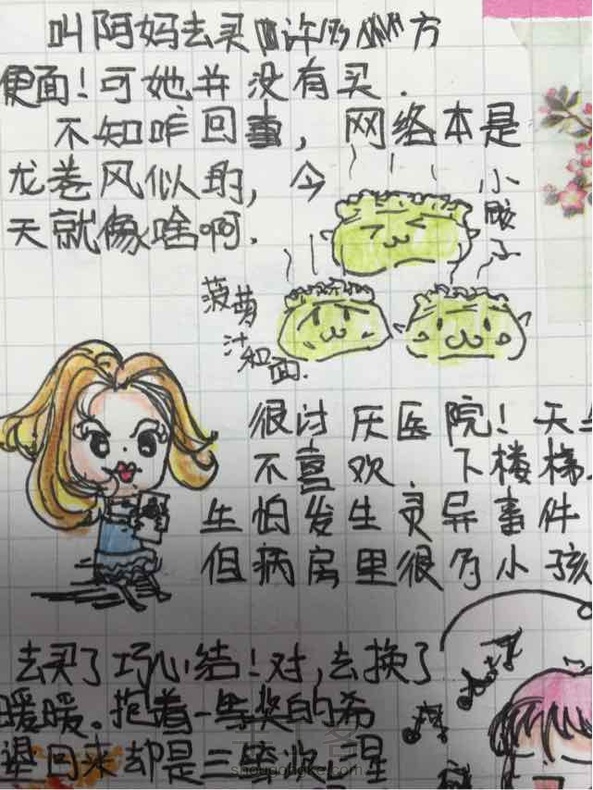 叫阿妈去买许多方
便面！可她并没有买.
不知咋回事，网络本是
龙卷风似的，今
天就像啥啊.
小
饺
子
菠萄
汁
和面.
很讨厌医院！天生
不喜欢.下楼梯
生怕发生灵异事件
但病房里很多小孩
去买了巧心结！对，去换了
暖暖。抱着一等奖的希
退回来却是三等奖！三星